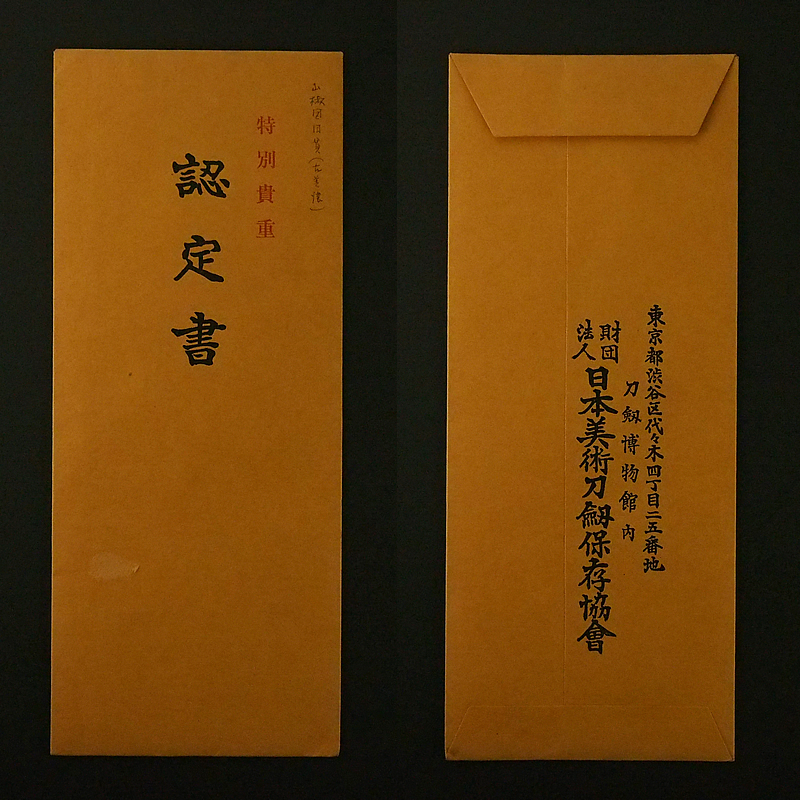 山椒図目貫(古美濃)
特別貴重
認定書
東京都渋谷区代々木四丁目二五番地
刀劔博物館內
財団
法人
日本美術刀劔保存協會